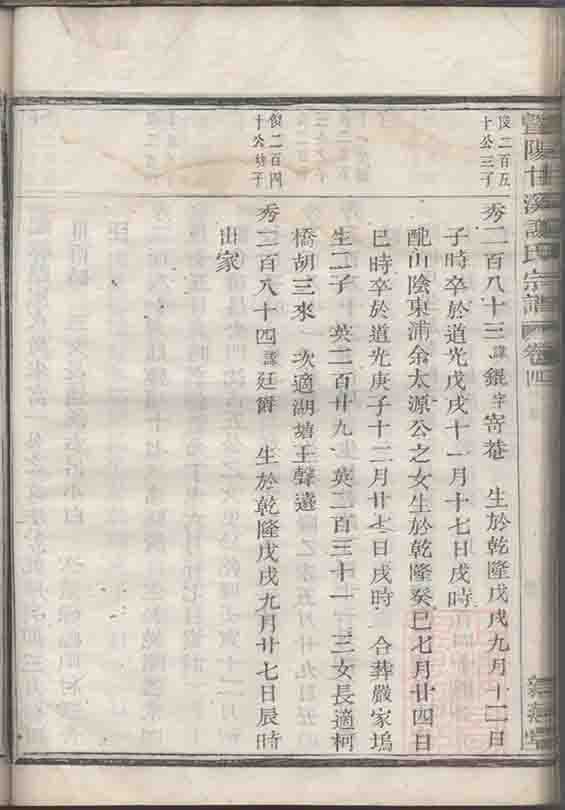 暨陽甘溪 氏宗譜 卷四
俊二百五
十公三子
秀二百八十三 諱錕 字寄菴 生於乾隆戊戌九月十二日
子時卒於道光戊戌十一月十七日戌時
配山陰東浦余太源公之女生於乾隆癸巳七月廿四日
巳時卒於道光庚子十二月廿七日戌時 合葬嚴家塢
生二子 英二百廿九 英二百三十一 三女長適柯
橋胡三來 次適湖塘王聲遠
俊二百四
十公 子
秀二百八十四 諱廷爵 生於乾隆戊戌九月廿七日辰時
出家